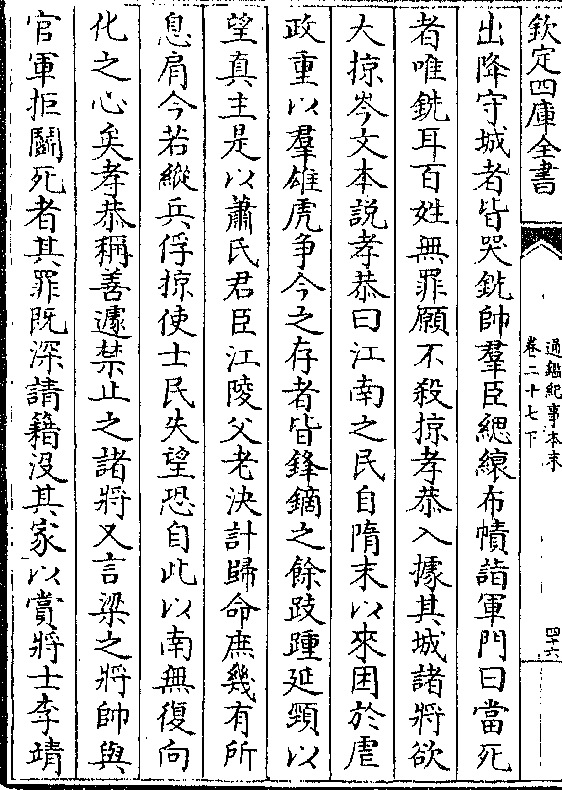 欽定四庫全書
通鑑紀事本末
卷二十七下
四十六
出降守城者皆哭銑帥羣臣緦縗布幘詣軍門曰當死
者唯銑耳百姓無罪願不殺掠孝恭入據其城諸將欲
大掠岑文本說孝恭曰江南之民自隋末以來困於虐
政重以羣雄虎爭今之存者皆鋒鏑之餘跂踵延頸以
望真主是以蕭氏君臣江陵父老決計歸命庶幾有所
息肩今若縱兵俘掠使士民失望恐自此以南無復向
化之心矣孝恭稱善遽禁止之諸將又言梁之將帥與
官軍拒鬭死者其罪既深請籍沒其家以賞將士李靖